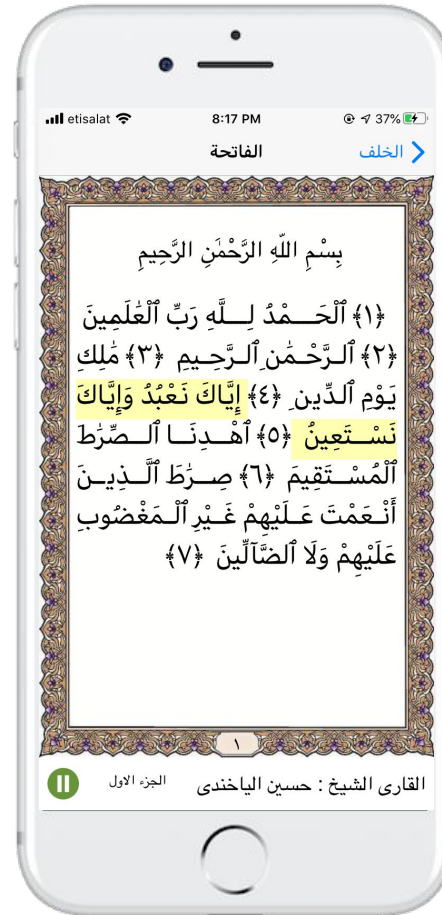 etisalat 8:17 PM 37%
الخلف الفاتحة
بِسْمِ اللَّهِ الرَّحْمَٰنِ الرَّحِيمِ
﴿١﴾ ٱلْحَمْدُ لِلَّهِ رَبِّ ٱلْعَٰلَمِينَ
﴿٢﴾ ٱلرَّحْمَٰنِ ٱلرَّحِيمِ ﴿٣﴾ مَٰلِكِ
يَوْمِ ٱلدِّينِ ﴿٤﴾ إِيَّاكَ نَعْبُدُ وَإِيَّاكَ
نَسْتَعِينُ ﴿٥﴾ ٱهْدِنَا ٱلصِّرَٰطَ
ٱلْمُسْتَقِيمَ ﴿٦﴾ صِرَٰطَ ٱلَّذِينَ
أَنْعَمْتَ عَلَيْهِمْ غَيْرِ ٱلْمَغْضُوبِ
عَلَيْهِمْ وَلَا ٱلضَّآلِّينَ ﴿٧﴾
١
القارى الشيخ : حسين الياخندى الجزء الاول